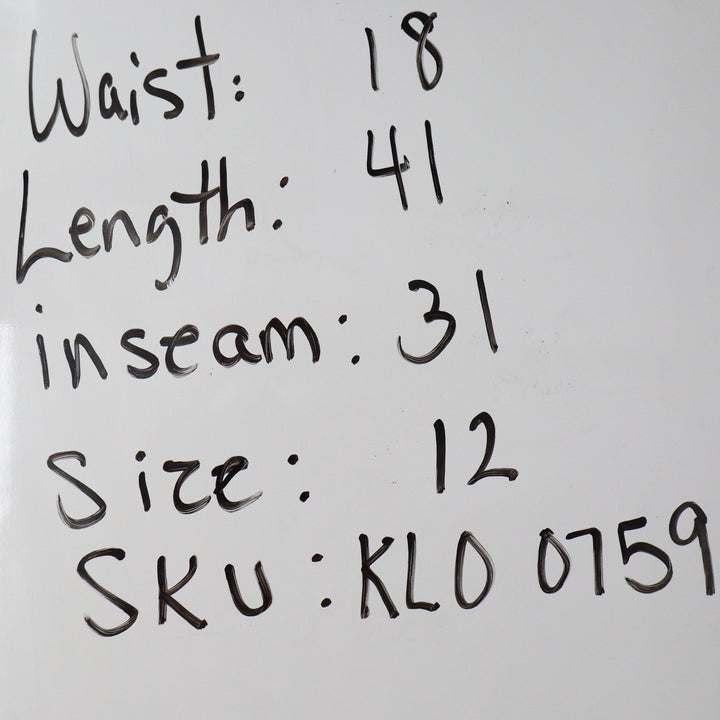 Waist: 18
Length: 41
inseam: 31
Size: 12
SKU: KLO 0759